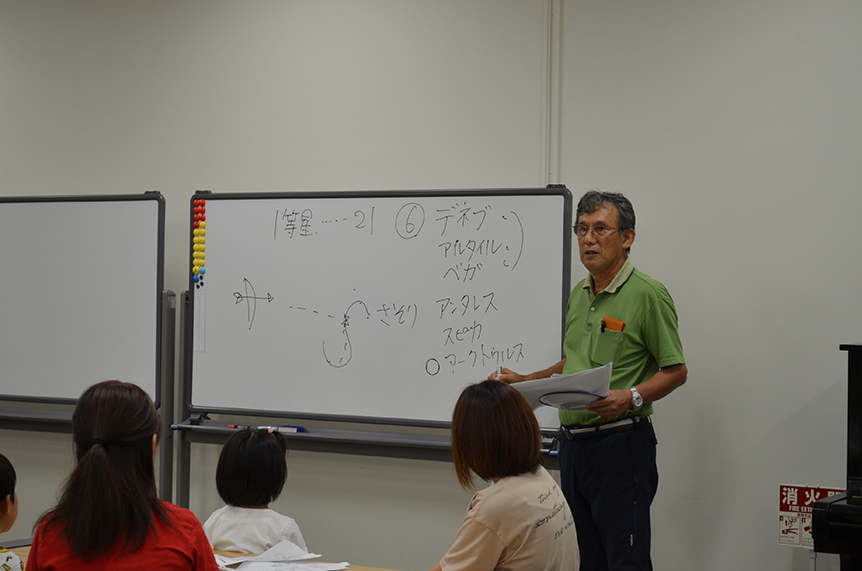 1等星.....21 ⑥ デネブ
アルタイル
ベガ
さそり アンタレス
スピカ
○アークトウルス
think of
消火
FIRE EXTI